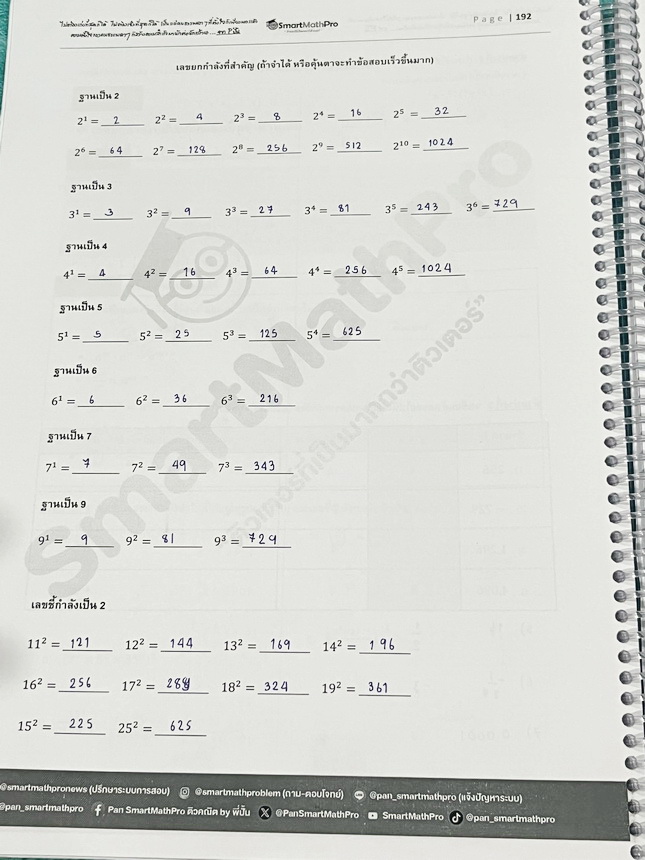 SmartMathPro
Page | 192
เลขยกกำลังที่สำคัญ (ถ้าจำได้ หรือคุ้นตาจะทำข้อสอบเร็วขึ้นมาก)
ฐานเป็น 2
2¹ = 2 2² = 4 2³ = 8 2⁴ = 16 2⁵ = 32
2⁶ = 64 2⁷ = 128 2⁸ = 256 2⁹ = 512 2¹⁰ = 1024
ฐานเป็น 3
3¹ = 3 3² = 9 3³ = 27 3⁴ = 81 3⁵ = 243 3⁶ = 729
ฐานเป็น 4
4¹ = 4 4² = 16 4³ = 64 4⁴ = 256 4⁵ = 1024
ฐานเป็น 5
5¹ = 5 5² = 25 5³ = 125 5⁴ = 625
ฐานเป็น 6
6¹ = 6 6² = 36 6³ = 216
ฐานเป็น 7
7¹ = 7 7² = 49 7³ = 343
ฐานเป็น 9
9¹ = 9 9² = 81 9³ = 729
SmartMathPro
ติวเตอร์ที่เป็นมากกว่าติวเตอร์"
เลขชี้กำลังเป็น 2
11² = 121 12² = 144 13² = 169 14² = 196
16² = 256 17² = 289 18² = 324 19² = 361
15² = 225 25² = 625
@smartmathpronews (ปรึกษาระบบการสอบ) @smartmathproblem (ถาม-ตอบโจทย์) @pan_smartmathpro (แจ้งปัญหาระบบ)
@pan_smartmathpro Pan SmartMathPro ติวคณิต by พี่ปั้น @PanSmartMathPro SmartMathPro @pan_smartmathpro